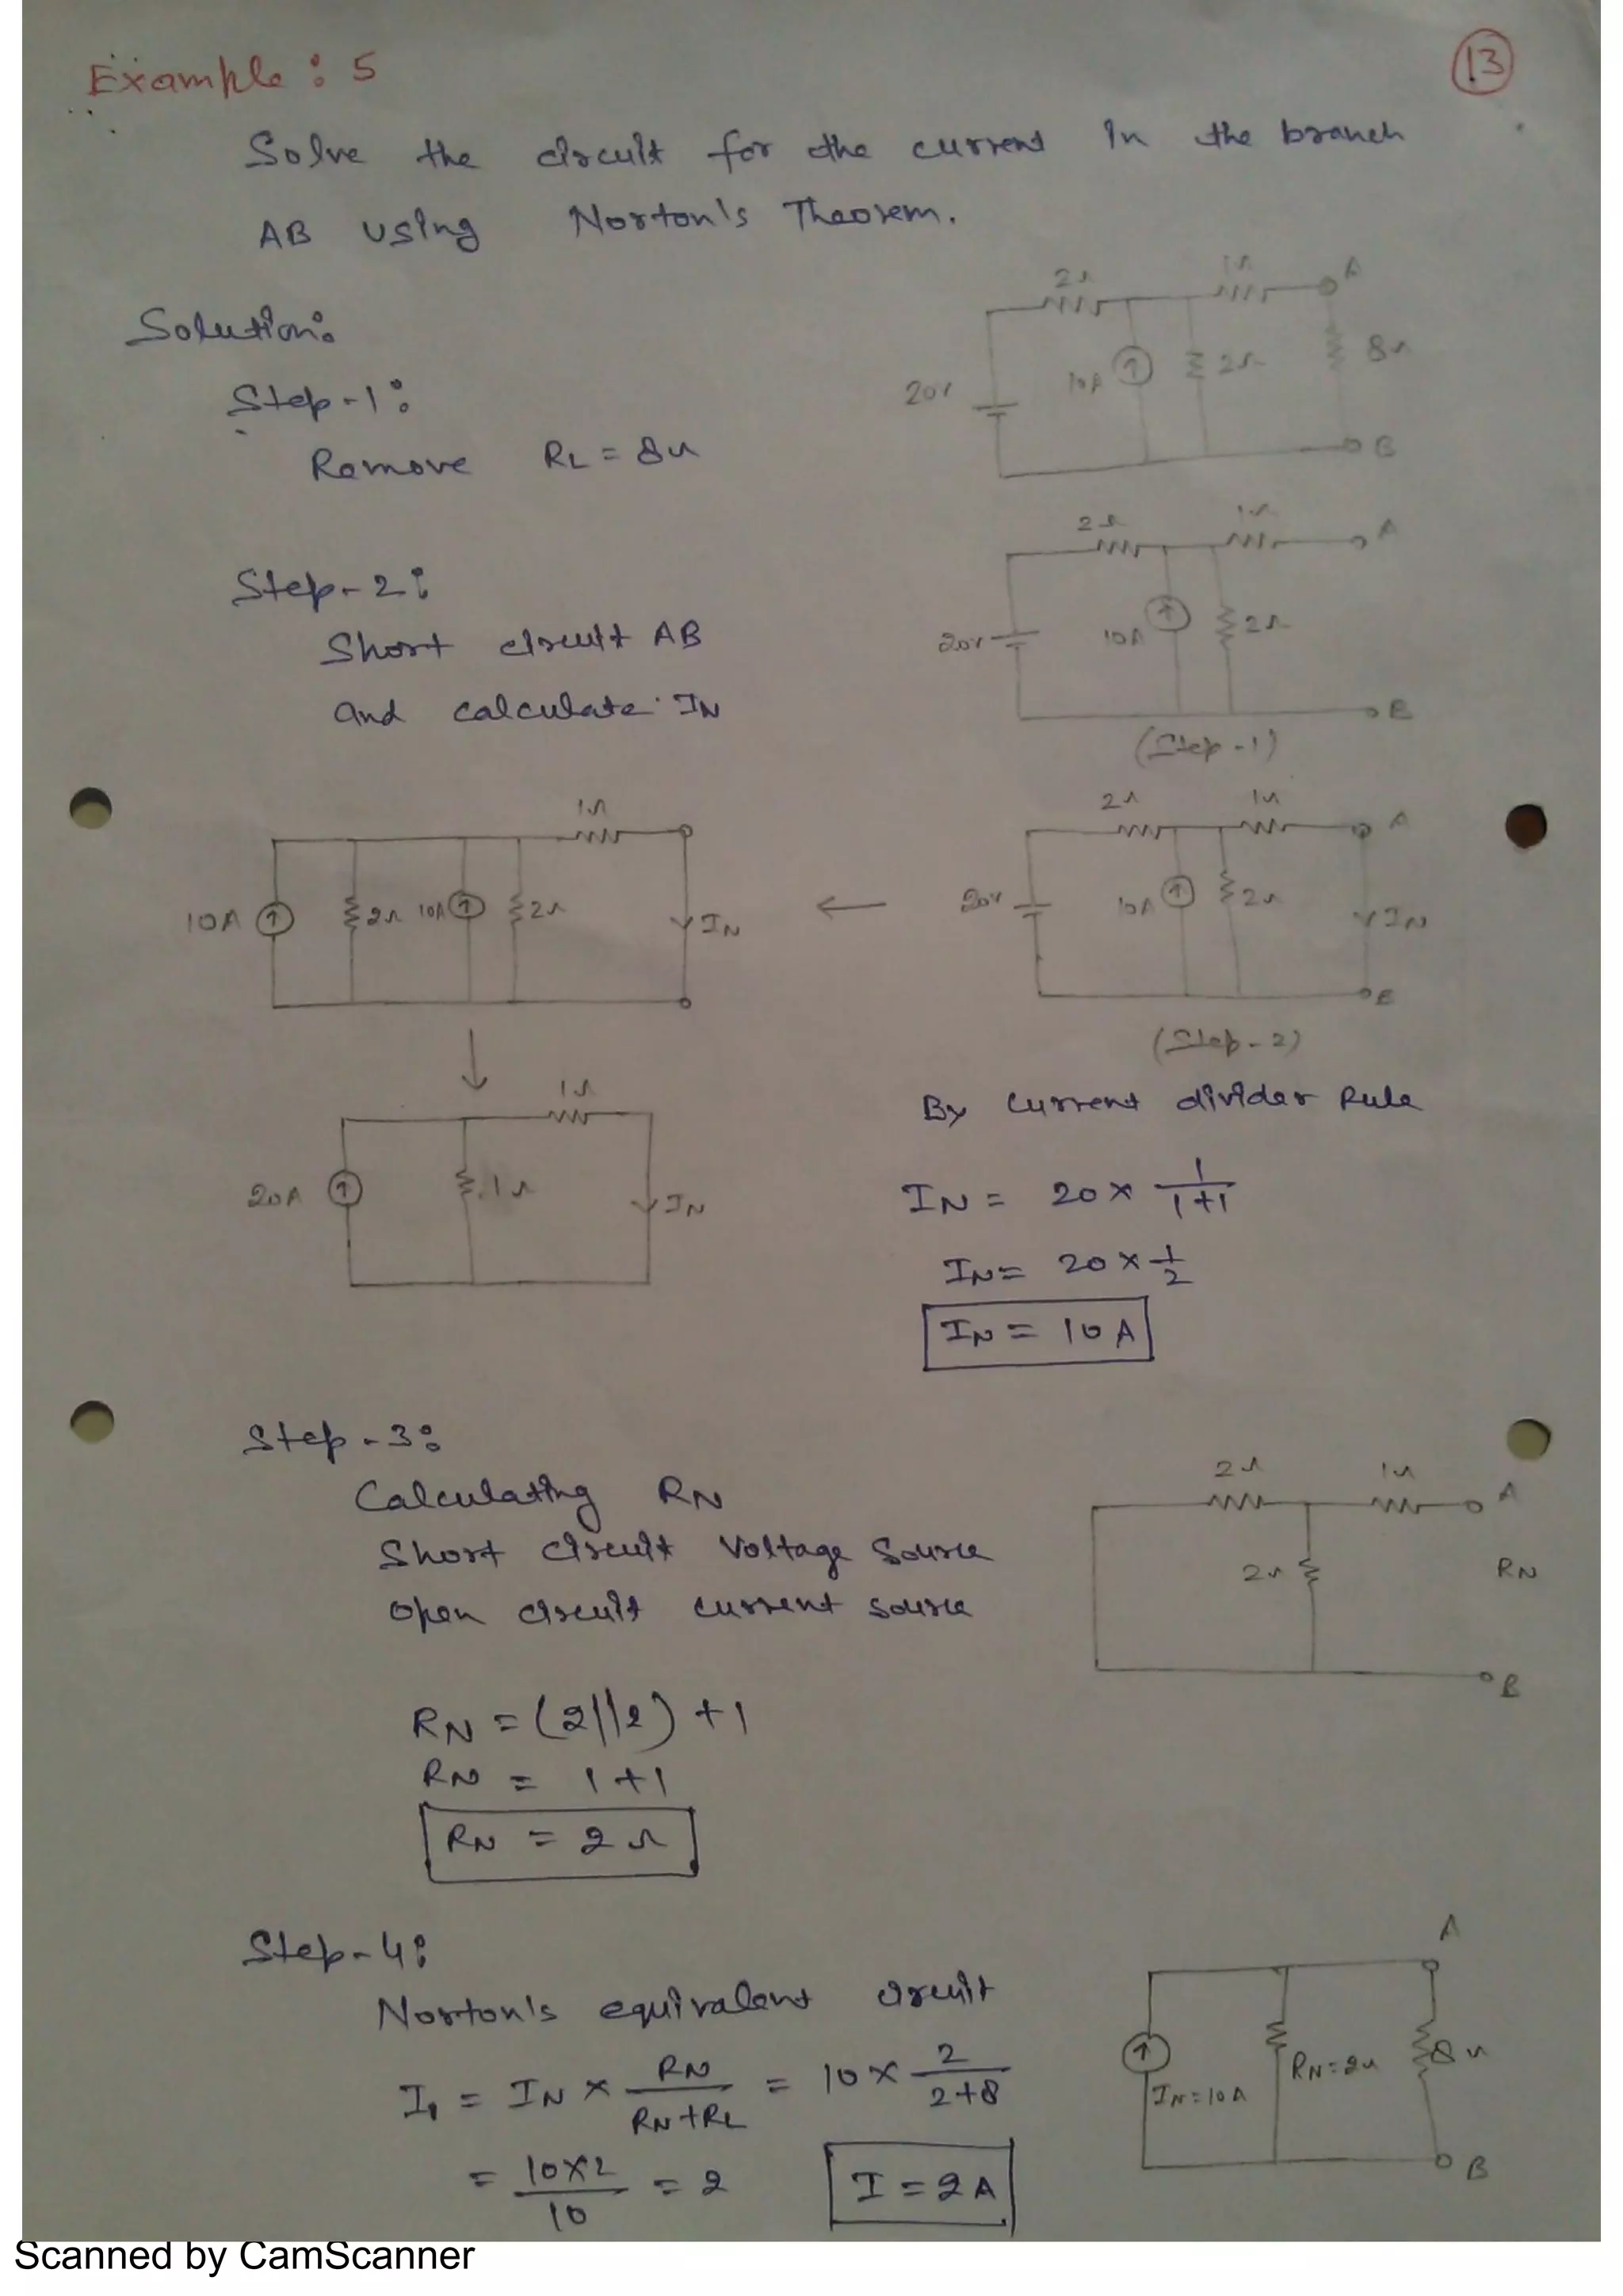 Example: 5
13
Solve the circuit for the current in the branch
AB using Norton's Theorem.
2Ω 1Ω A
20V 10A 2Ω 8Ω
B
Solution:
Step-1:
Remove RL = 8Ω
2Ω 1Ω A
20V 10A 2Ω
B
(Step-1)
Step-2:
Short circuit AB
and calculate IN
2Ω 1Ω A
20V 10A 2Ω IN
B
(Step-2)
1Ω
10A 2Ω 10A 2Ω IN
1Ω
20A 1Ω IN
By current divider Rule
IN = 20 × 1/1+1
IN = 20 × 1/2
IN = 10 A
Step-3:
Calculating RN
Short circuit Voltage Source
open circuit current source
2Ω 1Ω A
2Ω RN
B
RN = (2||2) + 1
RN = 1+1
RN = 2Ω
Step-4:
Norton's equivalent circuit
I1 = IN × RN/RN+RL = 10 × 2/2+8
= 10×2/10 = 2
I = 2A
A
IN=10A RN=2Ω 8Ω
B
Scanned by CamScanner